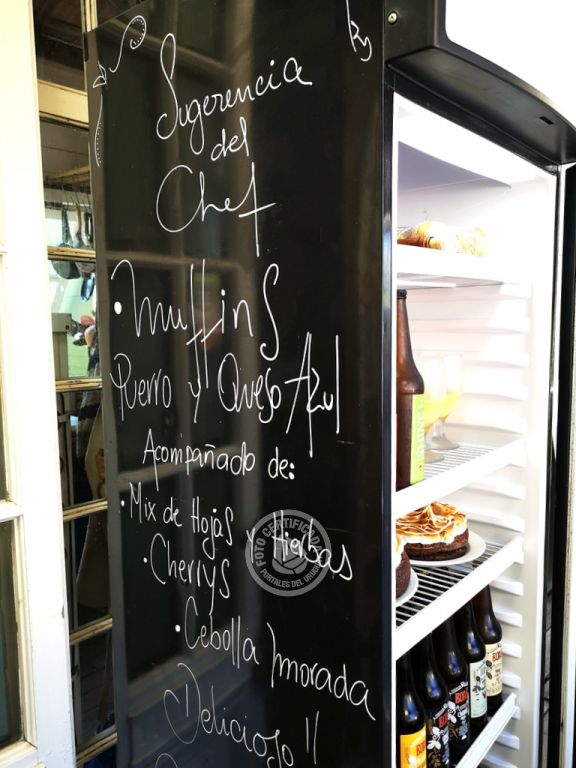 Sugerencia
del
Chef
• Muffins
Puerro y Queso Azul
Acompañado de:
• Mix de Hojas y Hierbas
• Cherrys
• Cebolla morada
Delicioso!!
FOTO CERTIFICADA
PORTALES DEL URUGUAY